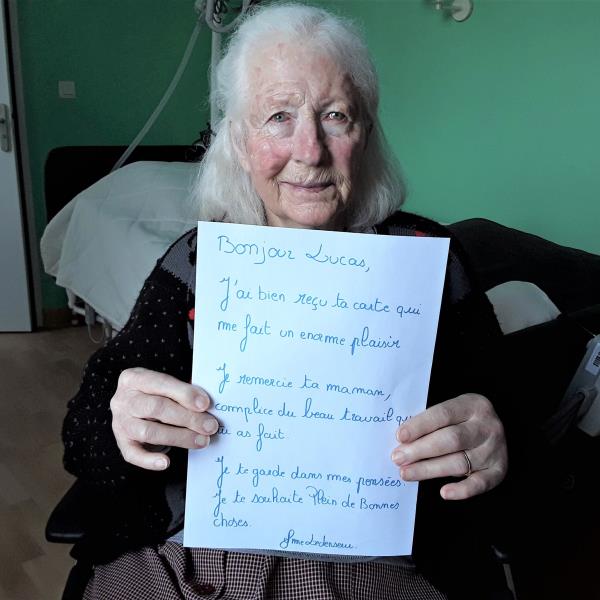 Bonjour Lucas,
J'ai bien reçu ta carte qui
me fait un enorme plaisir
Je remercie ta maman,
complice du beau travail qu
tu as fait.
Je te garde dans mes pensées.
Je te souhaite Plein de Bonnes
choses.
Mme